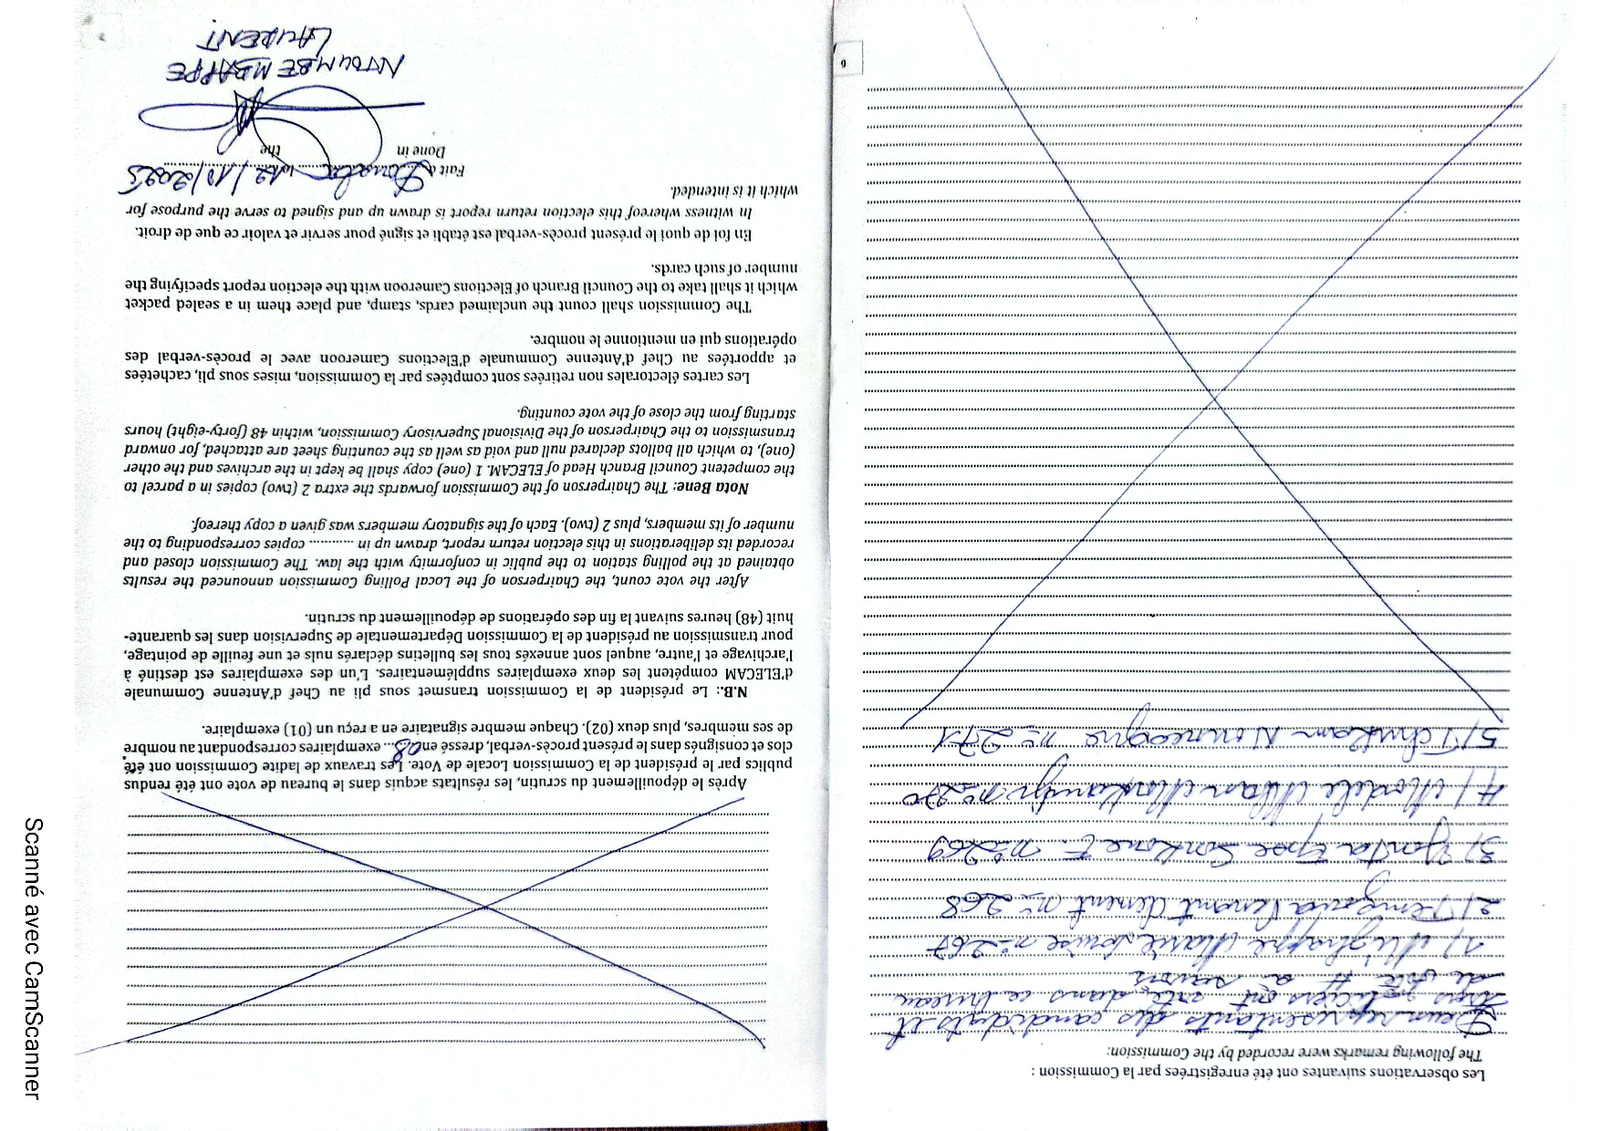 Les observations suivantes ont été enregistrées par la Commission :
The following remarks were recorded by the Commission:
Deux représentants des candidats et
trois policiers ont voté dans ce bureau
de vote à savoir
1) Marie Louise n° 267
2) Clément n° 268
3) Yonta Epse n° 269
4) n° 270
5) n° 271
9
Après le dépouillement du scrutin, les résultats acquis dans le bureau de vote ont été rendus
publics par le président de la Commission Locale de Vote. Les travaux de ladite Commission ont été
clos et consignés dans le présent procès-verbal, dressé en 08... exemplaires correspondant au nombre
de ses membres, plus deux (02). Chaque membre signataire en a reçu un (01) exemplaire.
N.B.: Le président de la Commission transmet sous pli au Chef d'Antenne Communale
d'ELECAM compétent les deux exemplaires supplémentaires. L'un des exemplaires est destiné à
l'archivage et l'autre, auquel sont annexés tous les bulletins déclarés nuls et une feuille de pointage,
pour transmission au président de la Commission Départementale de Supervision dans les quarante-
huit (48) heures suivant la fin des opérations de dépouillement du scrutin.
After the vote count, the Chairperson of the Local Polling Commission announced the results
obtained at the polling station to the public in conformity with the law. The Commission closed and
recorded its deliberations in this election return report, drawn up in ........... copies corresponding to the
number of its members, plus 2 (two). Each of the signatory members was given a copy thereof.
Nota Bene: The Chairperson of the Commission forwards the extra 2 (two) copies in a parcel to
the competent Council Branch Head of ELECAM. 1 (one) copy shall be kept in the archives and the other
(one), to which all ballots declared null and void as well as the counting sheet are attached, for onward
transmission to the Chairperson of the Divisional Supervisory Commission, within 48 (forty-eight) hours
starting from the close of the vote counting.
Les cartes électorales non retirées sont comptées par la Commission, mises sous pli, cachetées
et apportées au Chef d'Antenne Communale d'Elections Cameroon avec le procès-verbal des
opérations qui en mentionne le nombre.
The Commission shall count the unclaimed cards, stamp, and place them in a sealed packet
which it shall take to the Council Branch of Elections Cameroon with the election report specifying the
number of such cards.
En foi de quoi le présent procès-verbal est établi et signé pour servir et valoir ce que de droit.
In witness whereof this election return report is drawn up and signed to serve the purpose for
which it is intended.
Fait à Douala le 12/10/2025
Done in the
NTOUMBE MBAPPE
LAURENT
Scanné avec CamScanner